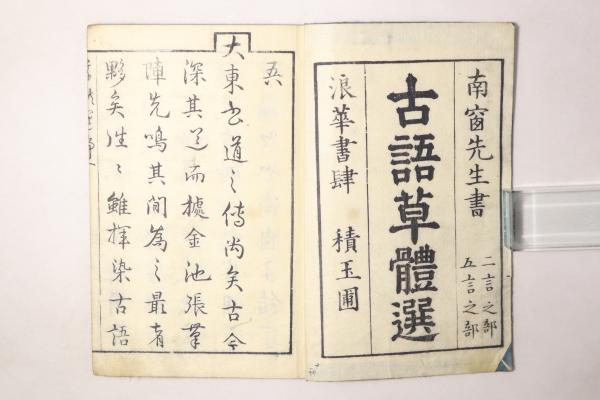 南窗先生書
二言之部
五言之部
古語草體選
浪華書肆 積玉圃
大東書道之傳尚矣古今
深其道而據金池張筆
陣先鳴其間為之最者
夥矣雖揮染古語